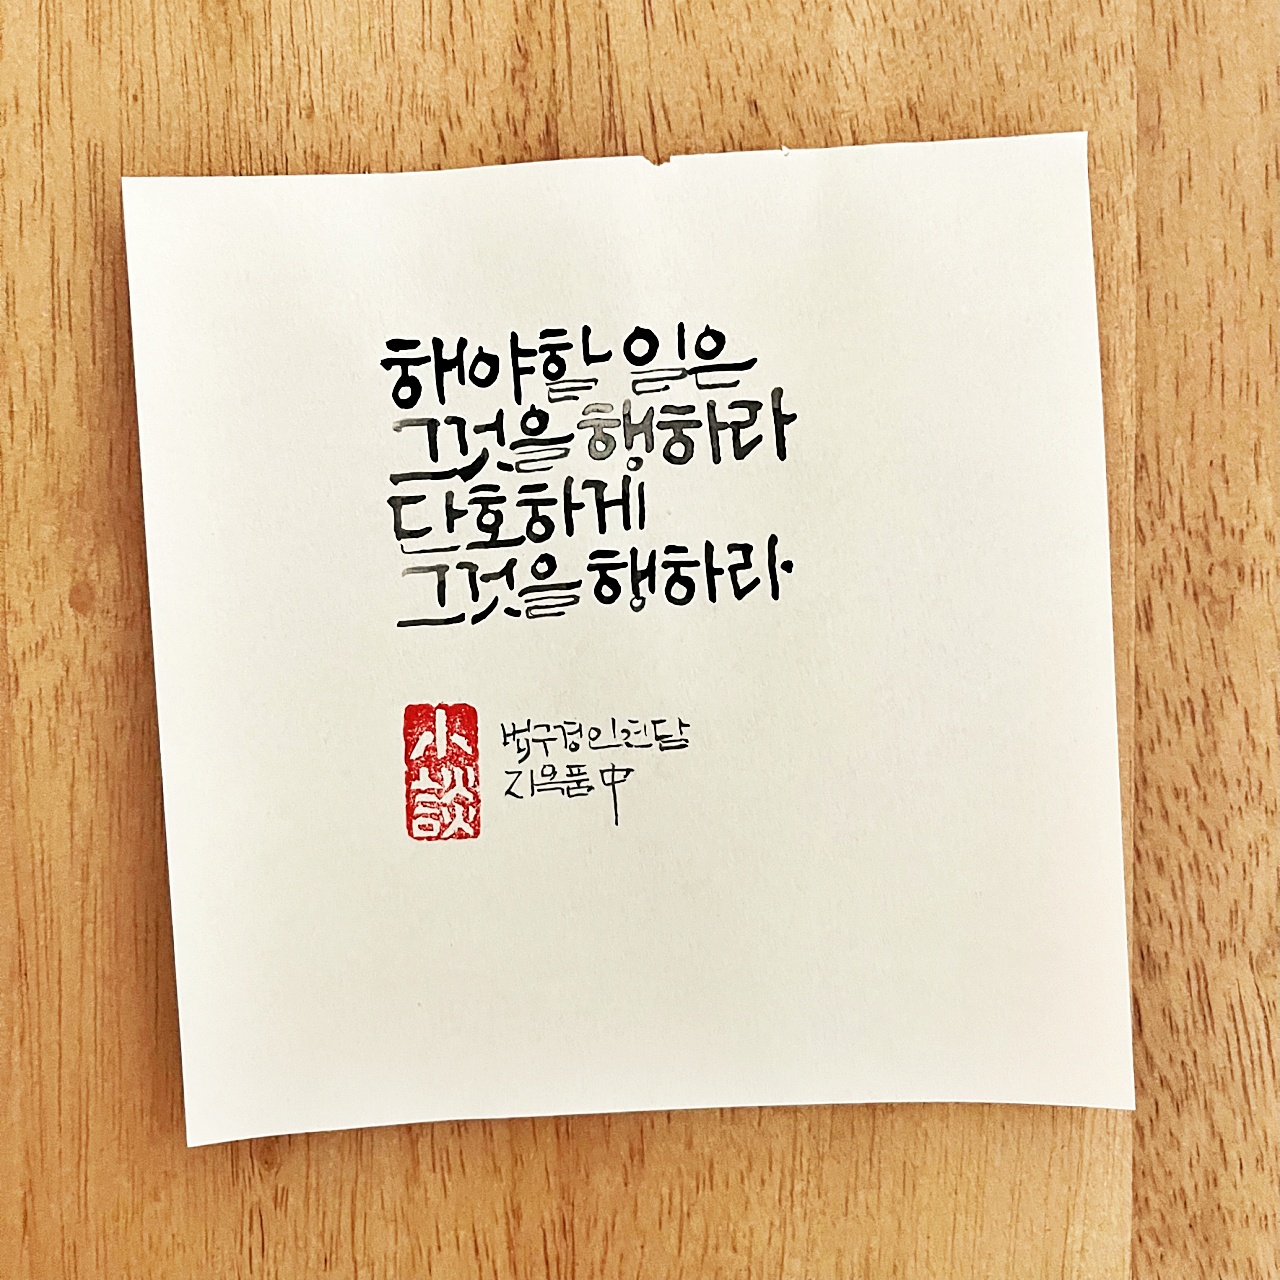 해야할 일은
그것을 행하라
단호하게
그것을 행하라.
小談
법구경 인연담
지옥품 中